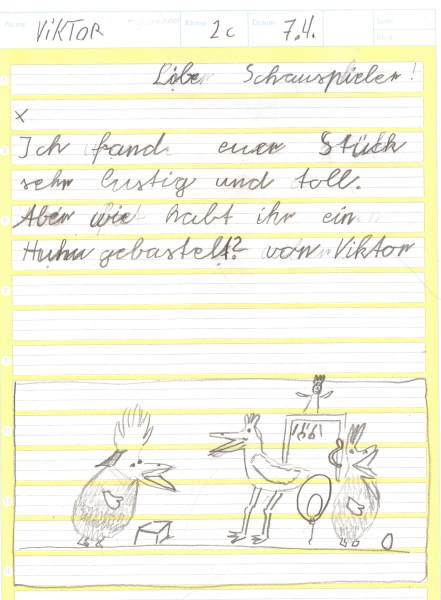 Name VIKTOR Klasse 2c Datum 7.4.
Liebe Schauspieler!
x
Ich fand euer Stück
sehr lustig und toll.
Aber wie habt ihr ein
Huhn gebastelt? von Viktor